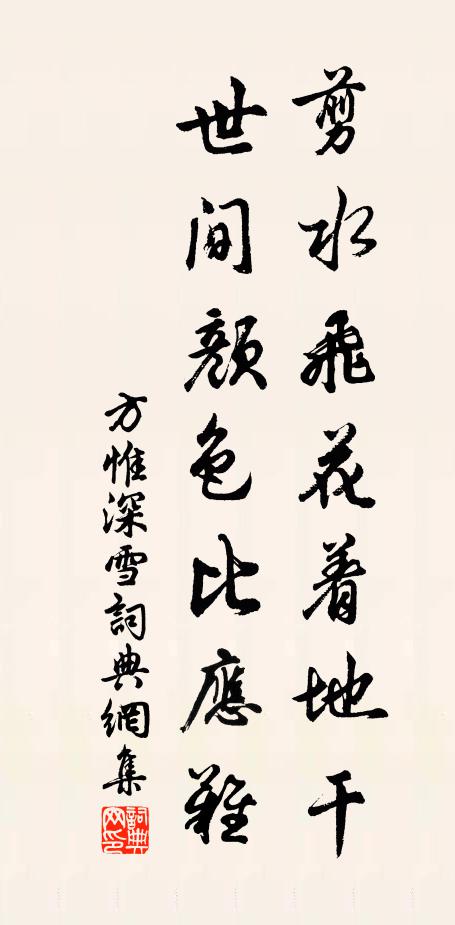 剪水飛花着地干
世间顏色比應難
方惟深雪詞典網集
詞典網印